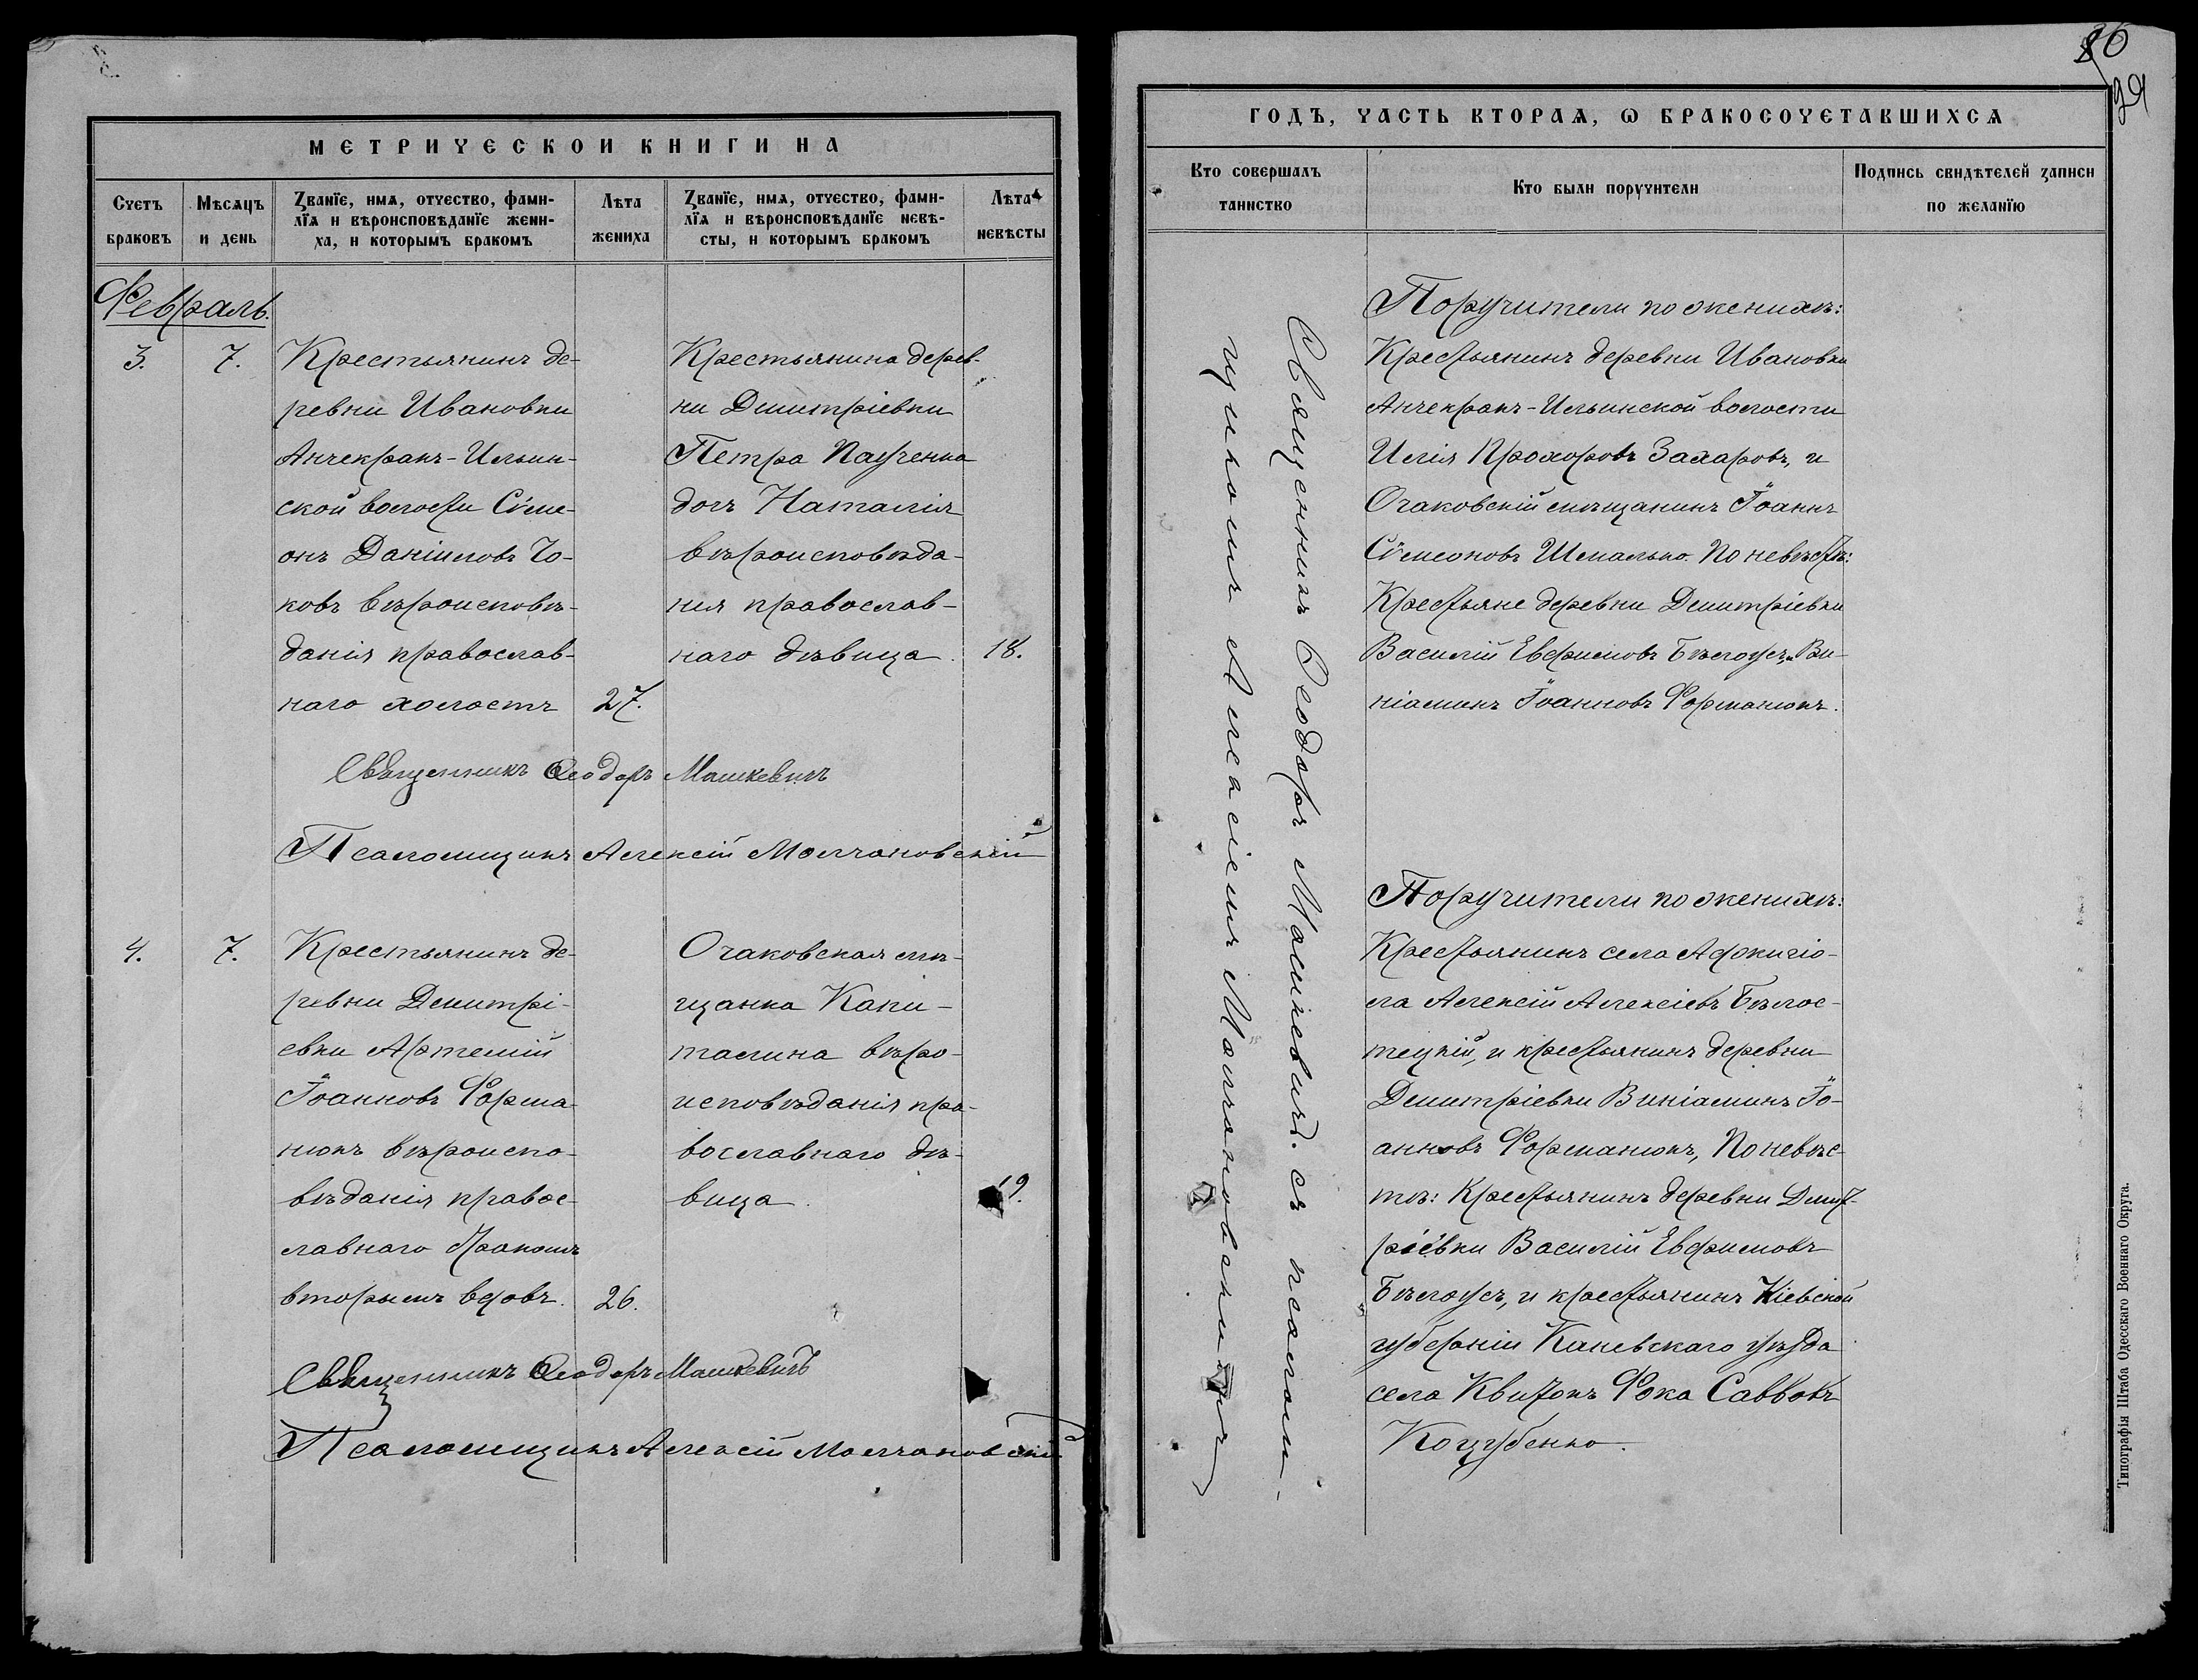 МЕТРИЧЕСКОЙ КНИГИ НА
Счетъ браковъ
Мѣсяцъ и день
Званїе, имя, отчество, фами-
лїя и вѣроисповѣданїе жени-
ха, и которымъ бракомъ
Лѣта жениха
Званїе, имя, отчество, фами-
лїя и вѣроисповѣданїе невѣ-
сты, и которымъ бракомъ
Лѣта невѣсты
Февраль.
3.
7.
Крестьянинъ де-
ревни Ивановки
Анчекракъ-Ильин-
ской волости Сѵме-
онъ Данiиловъ Чо-
ковъ вѣроисповѣ-
данiя православ-
наго холостъ
27.
Крестьянина дерев-
ни Димитрiевки
Петра Паученка
дочь Наталiя
вѣроисповѣда-
нiя православ-
наго дѣвица.
18.
Священникъ Ѳеодоръ Машкевичъ
Псаломщикъ Алексiй Молчановскiй
4.
7.
Крестьянинъ де-
ревни Димитрi-
евки Артемiй
Iоанновъ Форма-
нюкъ вѣроиспо-
вѣданiя правос-
лавнаго бракомъ
вторымъ вдовъ.
26.
Очаковская мѣ-
щанка Капи-
талина вѣро-
исповѣданiя пра-
вославнаго дѣ-
вица.
19.
Священникъ Ѳеодоръ Машкевичъ
Псаломщикъ Алексiй Молчановскiй
36
39
ГОДЪ, ЧАСТЬ ВТОРАЯ, Ѡ БРАКОСОЧЕТАВШИХСЯ
Кто совершалъ таинство
Кто были поручители
Подпись свидѣтелей записи по желанїю
Священникъ Ѳеодоръ Машкевичъ. съ псалом-
щикомъ Алексiемъ Молчановскимъ
Поручители по женихѣ:
Крестьянинъ деревни Ивановки
Анчекракъ-Ильинской волости
Илiя Прохоровъ Захаровъ, и
Очаковскiй мѣщанинъ Iоаннъ
Сѵмеоновъ Шмалько. По невѣстѣ:
Крестьяне деревни Димитрiевки
Василiй Евфимовъ Бѣлоусъ, и Ви-
нiаминъ Iоанновъ Форманюкъ.
Поручители по женихѣ:
Крестьянинъ села Аджигiо-
ла Алексiй Алексiевъ Бѣлос-
тецкiй, и крестьянинъ деревни
Димитрiевки Винiаминъ Iо-
анновъ Форманюкъ, По невѣс-
тѣ: Крестьянинъ деревни Димит-
рiевки Василiй Евфимовъ
Бѣлоусъ, и крестьянинъ Кiевской
губернiи Каневскаго уѣзда
села Квитокъ Фока Саввовъ
Коцубенко.
Типографія Штаба Одесскаго Военнаго Округа.